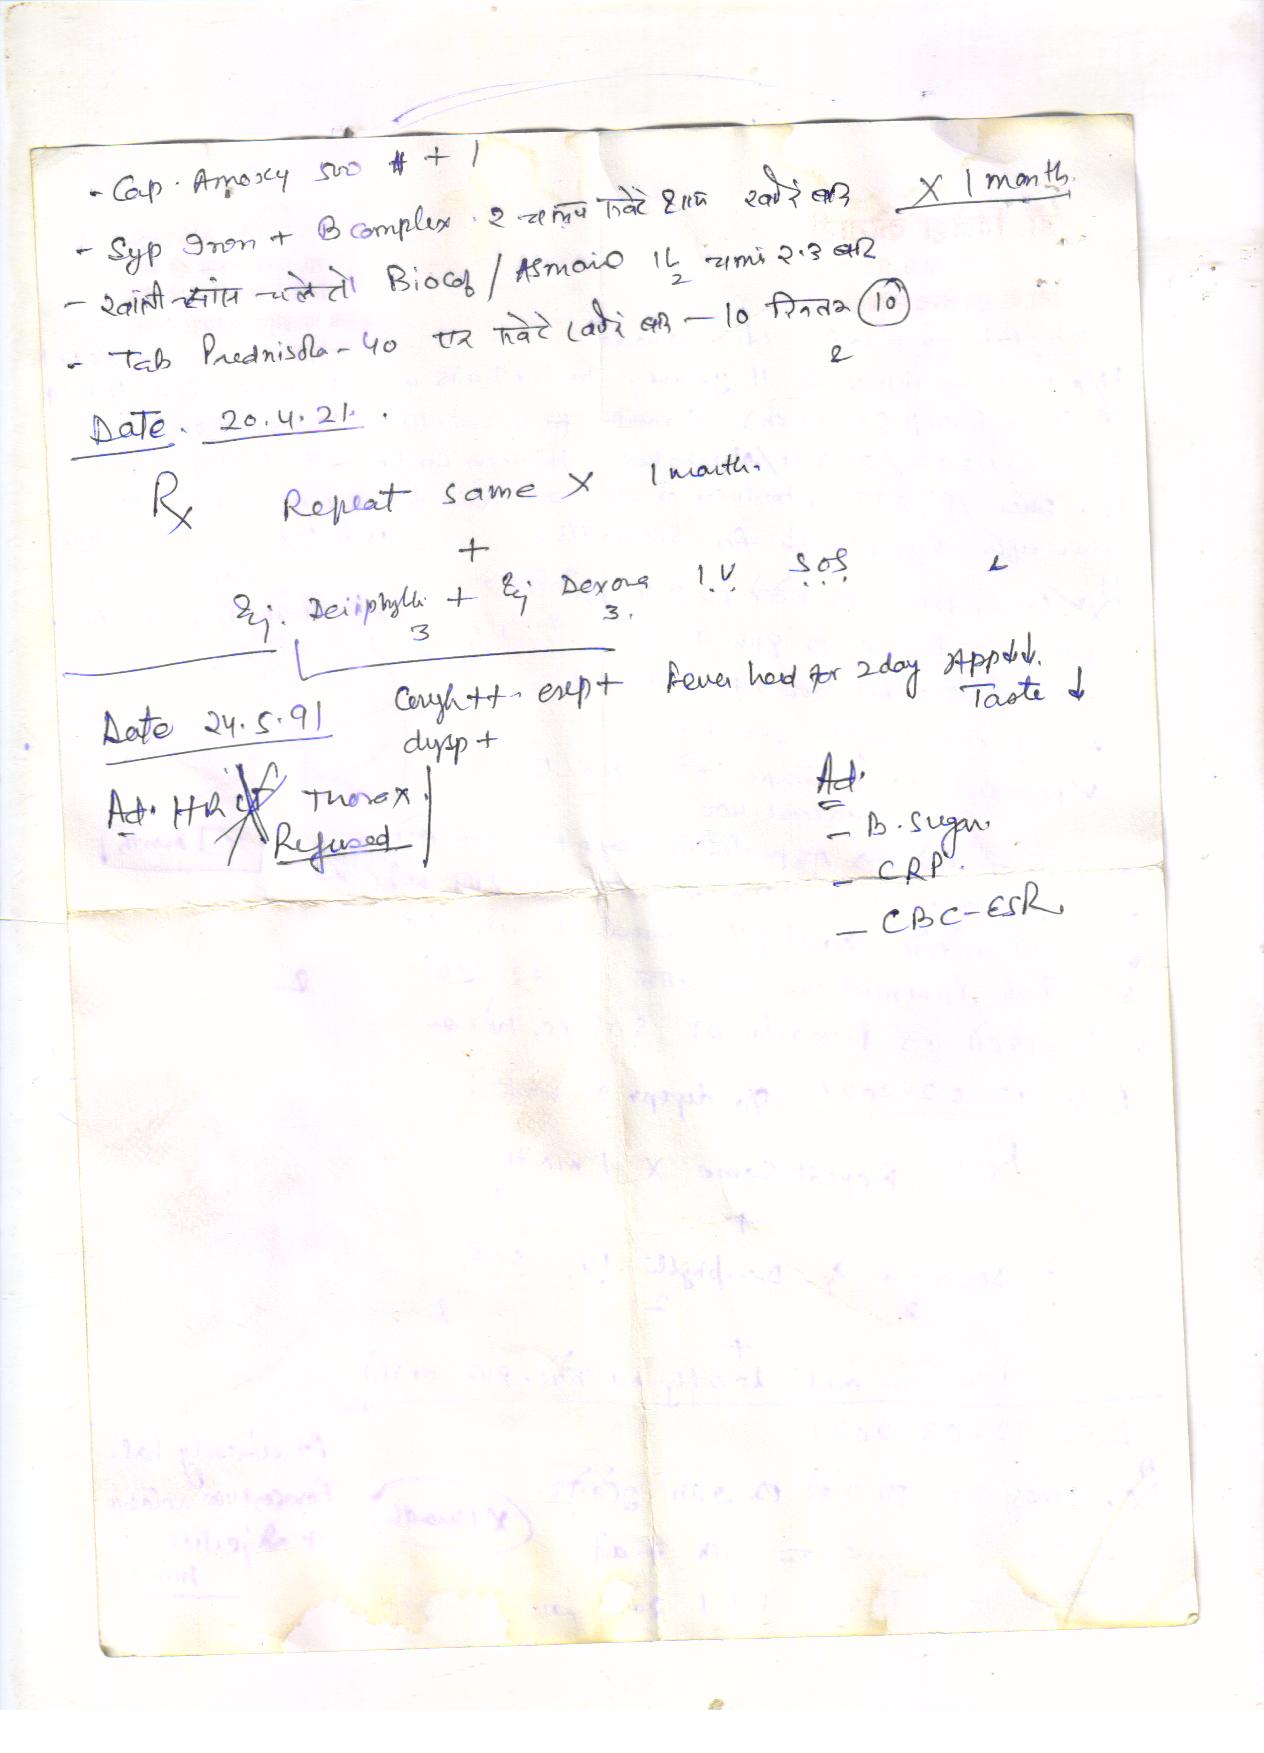 - Cap. Amoxy 500 # + 1
- Syp Iron + B complex. 2 चम्मच सवेरे शाम खाने बाद X 1 month.
- खांसी सांस चले तो Biocof / Asmaid 1 1/2 चम्मच 2.3 बार
- Tab Prednisolo - 40 एक सवेरे खाने बाद - 10 दिन तक 10
Date. 20.4.21.
Rx Repeat same X 1 month.
+
Inj. Deriphyllin + Inj Dexona I.V SOS
3 3.
Date 24.5.91 Cough ++. exp + Fever had for 2 day App ↓↓↓.
dysp + Taste ↓
Ad. HRCT Thorax.
Refused
Ad.
- B. sugar.
- CRP.
- CBC - ESR.